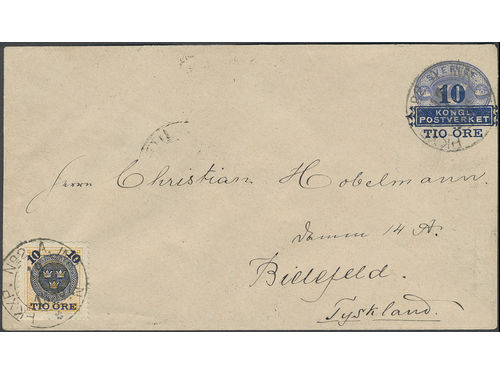 SVERIGE
10
KONGL.
POSTVERKET
TIO ÖRE
Herrn Christian Hobelmann.
Damm 14 A.
Bielefeld.
Tyskland.
10 10
TIO ÖRE
PKXP. No 2. A.